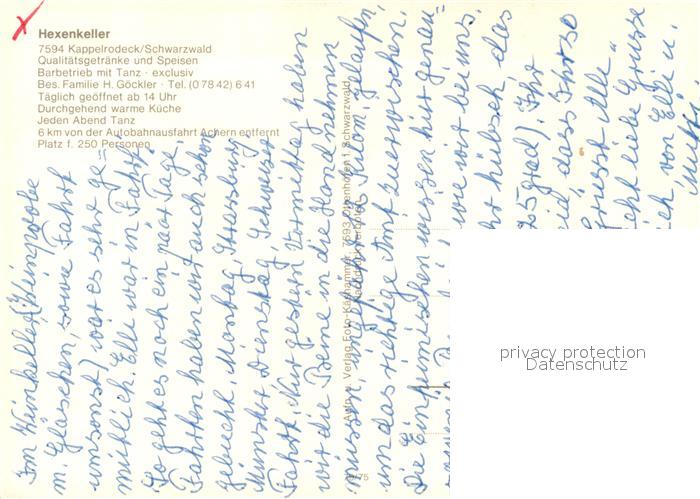 Hexenkeller
7594 Kappelrodeck/Schwarzwald
Qualitätsgetränke und Speisen
Barbetrieb mit Tanz · exclusiv
Bes. Familie H. Göckler · Tel. (0 78 42) 6 41
Täglich geöffnet ab 14 Uhr
Durchgehend warme Küche
Jeden Abend Tanz
6 km von der Autobahnausfahrt Achern entfernt
Platz f. 250 Personen
Im Weinkeller (Weinprobe
m. Gläschen, sowie Fahrt
umsonst) war es sehr ge=
mütlich. Elli war in Fahrt
So geht es noch ein paar Tage.
Fahrten haben wir auch schon
gebucht, Montag Strassburg
Münster, Dienstag, Schweizer
Fahrt. Nur gestern Vormittag haben
wir die Beine in die Hand nehmen
müssen, ungefähr Kilom. gelaufen,
um das richtige Amt zu erwischen.
Die Einheimischen wissen hier genau=
wie wir bei uns.
hübsch, das
25 grad). Ihr
dass Ihr so
Grüsst alle
liebe Grüsse
von Elli u.
Aufn. u. Verlag Foto-Käshammer, 7593 Ottenhöfen i. Schwarzwald
Nachdruck verboten
/75
privacy protection
Datenschutz